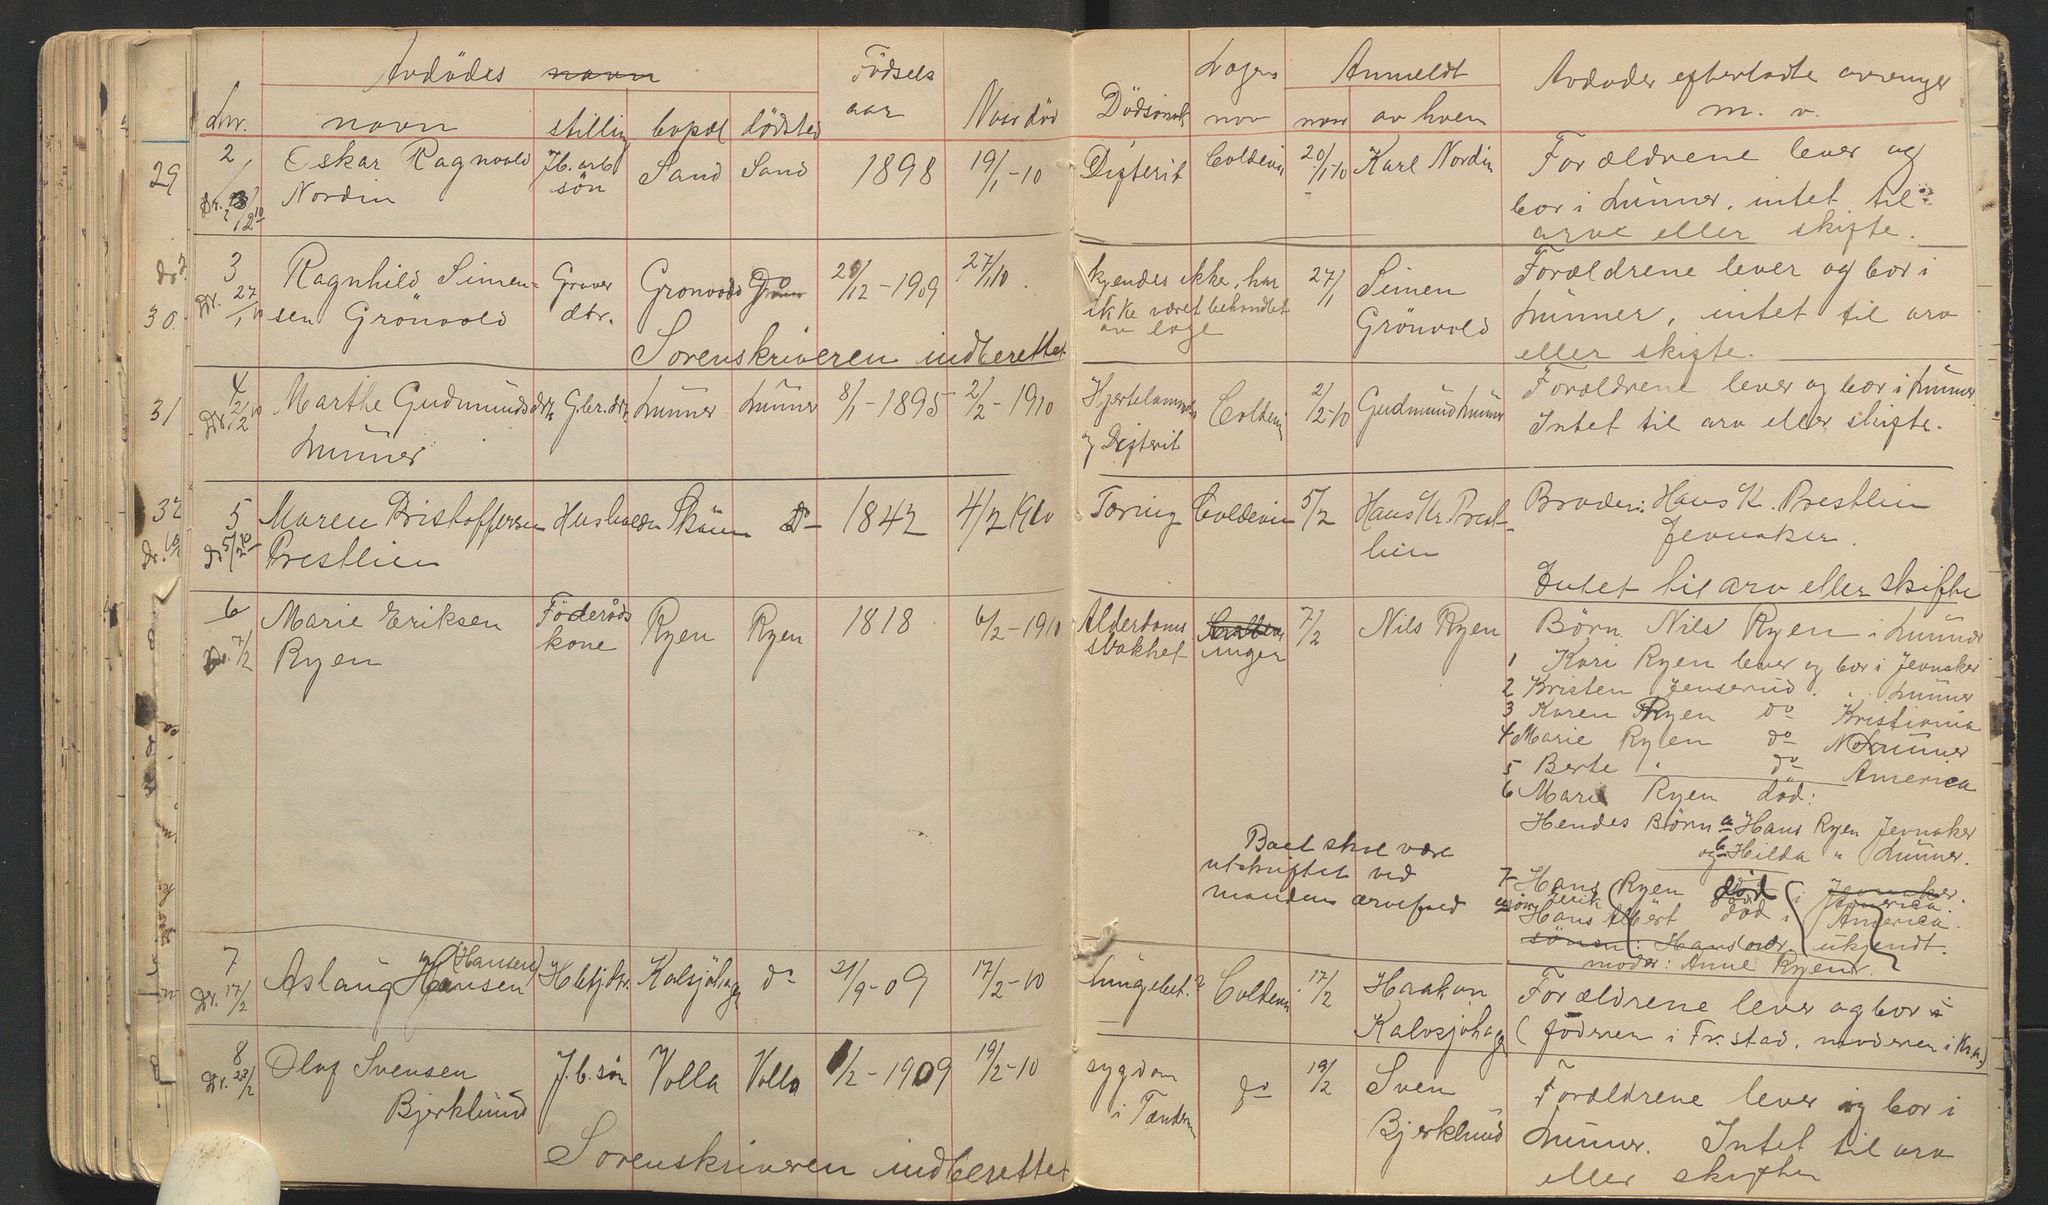 Avdødes navn
Fødsels
aar
Naar død
Lnr.
navn
stilling
bopæl
dødsted
Dødsaarsak
Lægens
nav
Anmeldt
naar
av hvem
Avdødes efterladte arvinger
m. v.
29
2
Oskar Ragnvald
Nordin
Jb. arb
søn
Sand
Sand
1898
19/1-10
Difterit
Coldevin
20/1-10
Karl Nordin
Forældrene lever og
bor i Lunner, intet til
arv eller skifte.
30
3
Dr. 27/1 10
Ragnhild Simen-
sen Grönvold
Graver
dtr.
Gronvold
Do
21/12-1909
27/1 10
Sorenskriveren indberettet
kjendes ikke, har
ikke været behandlet
av læge
27/1
Simen
Grönvold
Forældrene lever og bor i
Lunner, intet til arv
eller skifte.
31
4
Dr. 2/2 10
Marthe Gudmundsdtr.
Lunner
Gbr. dtr.
Lunner
Lunner
8/1-1895
2/2-1910
Hjertelammelse
og Difterit
Coldevin
2/2-10
Gudmund Lunner
Forældrene lever og bor i Lunner
Intet til arv eller skifte.
32
5
Dr. 5/2 10
Maren Kristoffersen
Prestlien
Husholder
Skøien
do
1842
4/2 1910
Tæring
Coldevin
5/2
Hans Kr. Prest-
lien
Broder: Hans K. Prestlien
Jevnaker.
Intet til arv eller skifte
6
Dr. 7/2
Marie Eriksen
Ryen
Föderåds
kone
Ryen
Ryen
1818
6/2-1910
Alderdoms
svakhet
ingen
7/2
Nils Ryen
Børn Nils Ryen i Lunner
1 Kari Ryen lever og bor i Jevnaker
2 Kristen Jenserud " " Lunner
3 Karen Ryen do Kristiania
4 Marie Ryen do Lunner
5 Berte " do America
6 Mari Ryen död:
Hendes Børn a Hans Ryen Jevnaker
og b Hilda " Lunner.
Boet skal være
utskiftet ved
mandens arvefald
7 Hans Ryen död i Jevnaker.
Erik America
Hans Albert död i America.
sönen: Hans ukjendt.
moder: Anne Ryen
7
Dr. 17/2
Aslaug Hansen
(Hansen)
Kalsjöhagen
do
21/9-09
17/2-10
Lungebet.?
Coldevin
17/2
Haakon
Kalvsjöhagen
Forældrene lever og bor i
(föderen i Fr.stad, moderen i Kra.)
8
Dr. 23/2
Olaf Svensen
Bjerklund
J. b. søn
Volla
Volla
1/2-1909
19/2-10
Sorenskriveren indberettet
sygdom
i Tænderne
do
19/2
Sven
Bjerklund
Forældrene lever og bor i
Lunner. Intet til arv
eller skifte